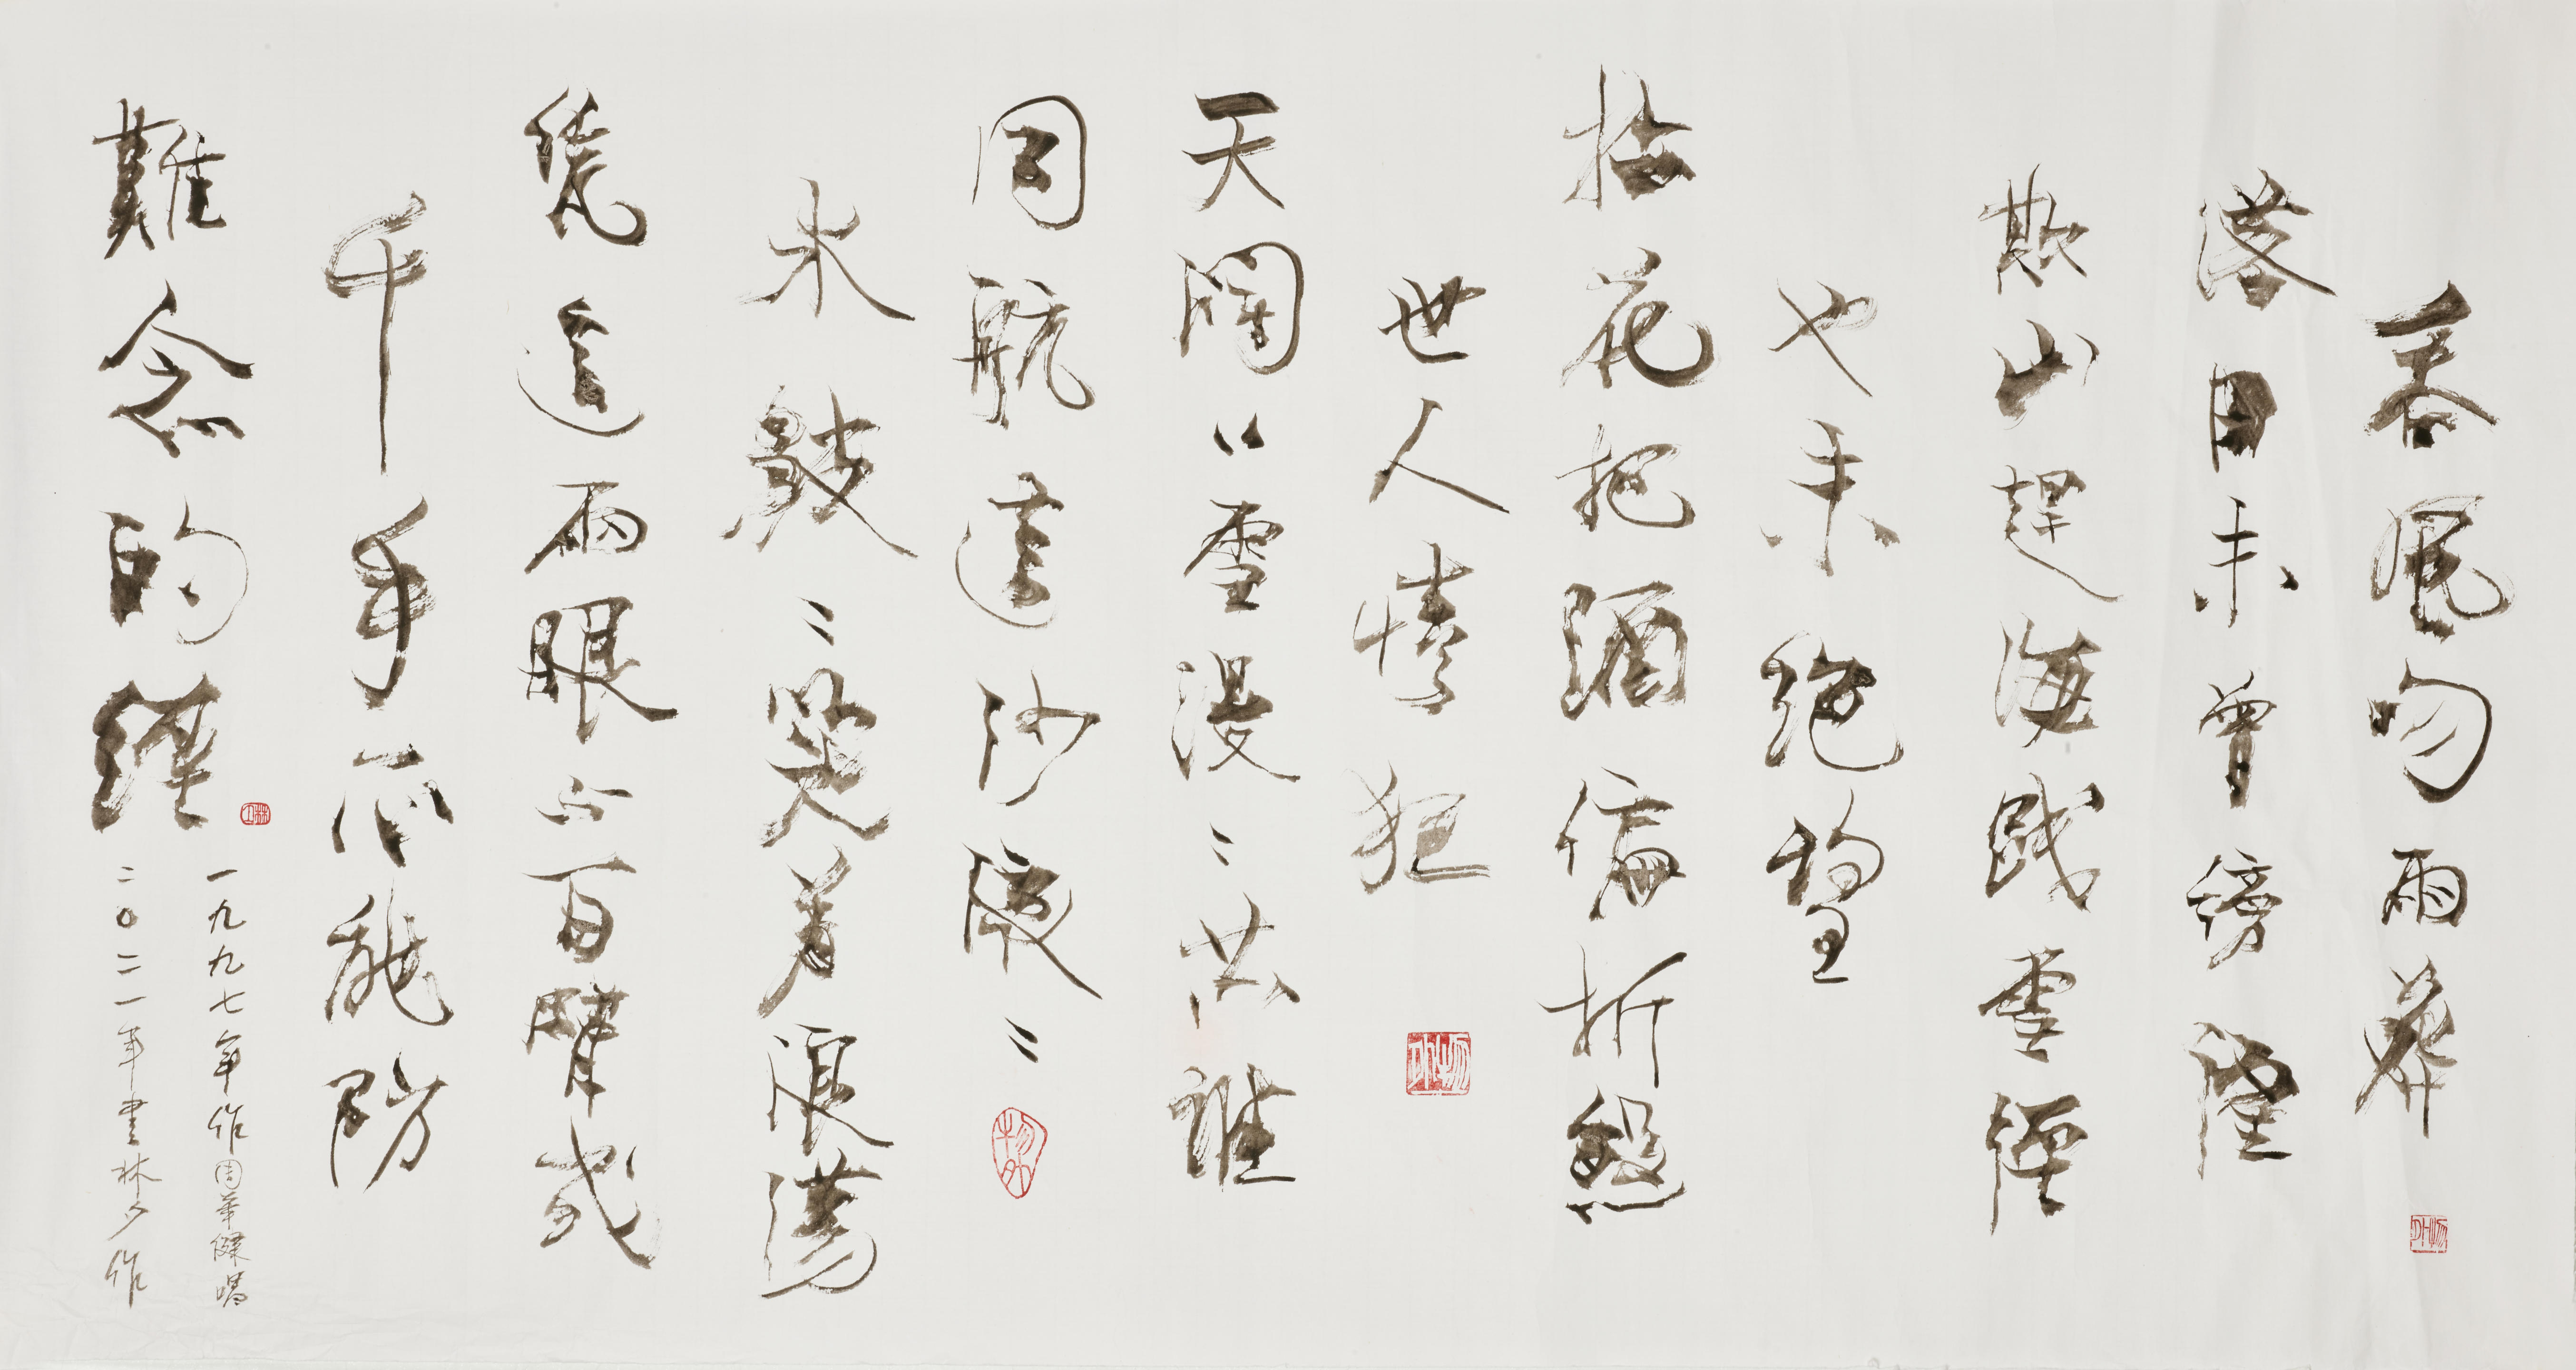 吞風吻雨葬
落日未曾徬徨
欺山趕海踐雪徑
也未絕望
拈花把酒偏折煞
世人情狂
天闊〃雪漫〃共誰
同航這沙滾〃
水皺〃笑着浪蕩
憑這兩眼与百臂或
千手不能防
難念的經
一九九七年作周華健唱
二〇二一年書林夕作